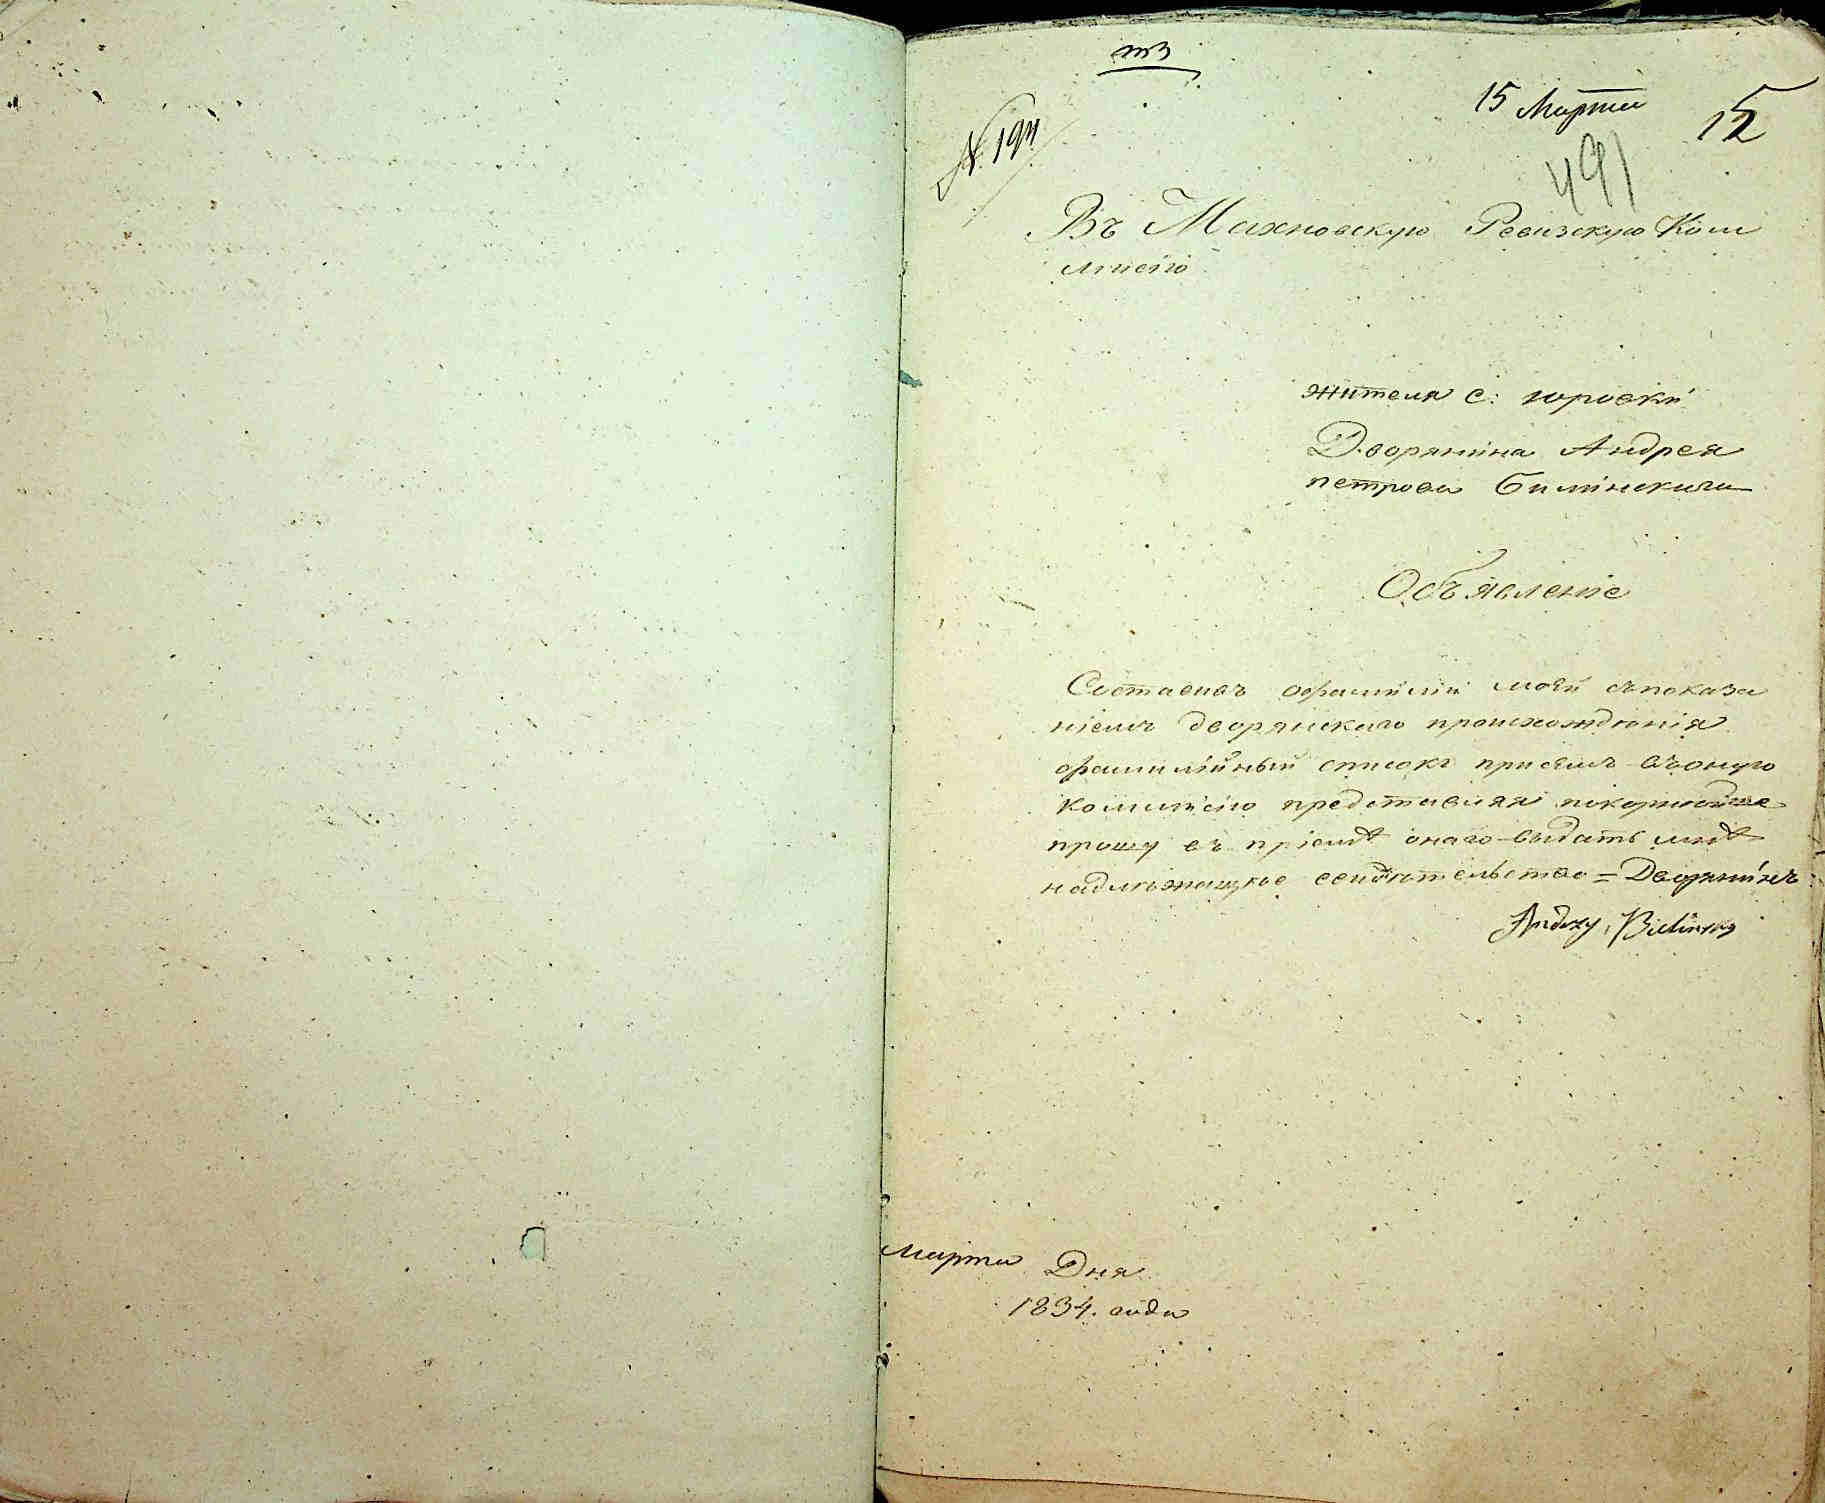 15 Марта
15
№ 194
491
Въ Махновскую Ревизскую Ком
мисію
жителя с: юровки
Дворянина Андрея
петрова Билинскага
Объявленіе
Составивъ офамиліи моей съпоказа
ніемъ дворянскаго происхожденія
фамилійный списокъ присемъ въоную
коммисію представляя покорнейше
прошу въ пріемѣ онаго выдать мнѣ
надлѣжащѣе свидѣтельство = Дворянинъ
Andrzy Bilinsky
марта Дня
1834. года